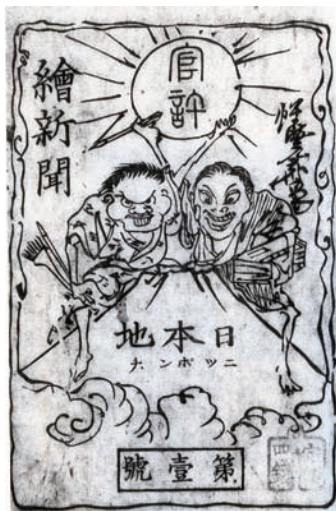 官許
繪新聞
日本地
ニツポンチ
第壹號